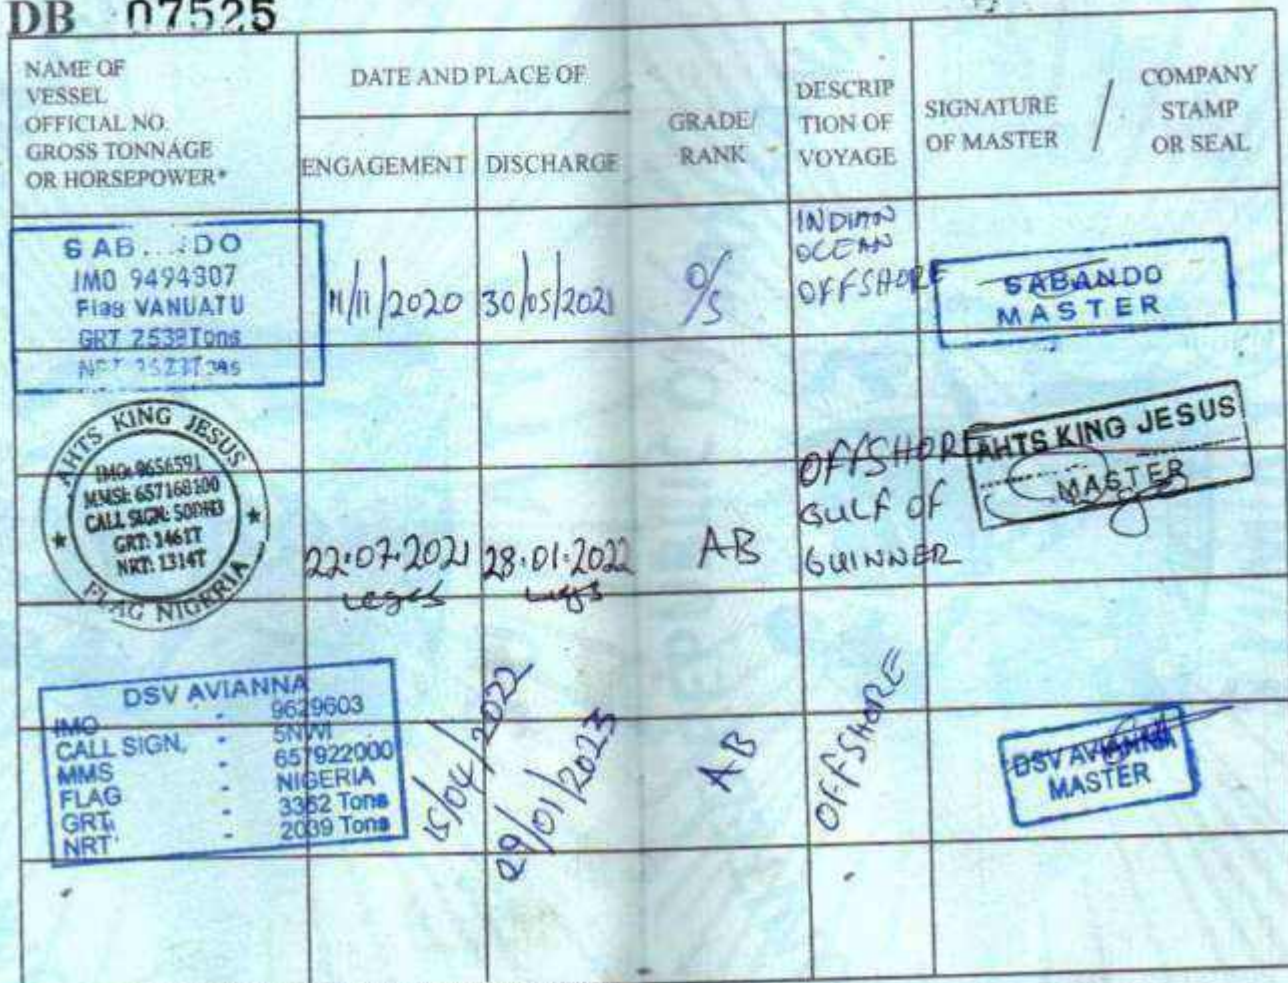 DB 07525
NAME OF
VESSEL
OFFICIAL NO.
GROSS TONNAGE
OR HORSEPOWER*
DATE AND PLACE OF
ENGAGEMENT
DISCHARGE
GRADE/
RANK
DESCRIP
TION OF
VOYAGE
SIGNATURE
OF MASTER
/
COMPANY
STAMP
OR SEAL
SAB...DO
IMO 9494307
Flag VANUATU
GRT 2538Tons
NRT
11/11/2020
30/05/2021
O/S
INDIAN
OCEAN
OFFSHORE
SABANDO
MASTER
AHTS KING JESUS
IMO: 9656591
MMSI: 657168100
CALL SIGN:
GRT: 3461T
NRT: 1314T
FLAG NIGERIA
22.07.2021
28.01.2022
Lagos
AB
OFFSHORE
GULF OF
GUINNER
AHTS KING JESUS
MASTER
DSV AVIANNA
IMO - 9629603
CALL SIGN. - 5NWI
MMS - 657922000
FLAG - NIGERIA
GRT. - 3352 Tons
NRT - 2039 Tons
15/04/2022
29/01/2023
AB
OFFSHORE
DSV AVIANNA
MASTER